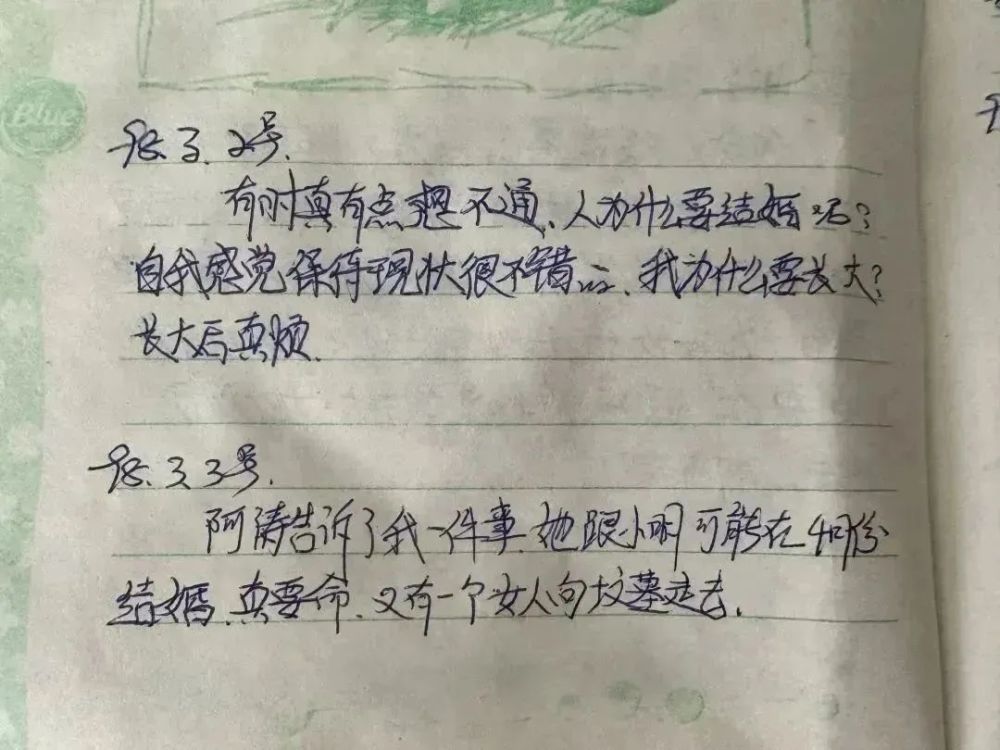 Blue
98.3.2号.
有时真有点想不通、人为什么要结婚呢?
自我感觉保持现状很不错……、我为什么要长大?
长大后真烦.
98.3.3号.
阿涛告诉了我一件事.她跟小明可能在4月份
结婚.真要命.又有一个女人向坟墓走去.